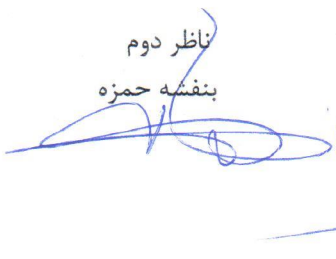 ناظر دوم
بنفشه حمزه